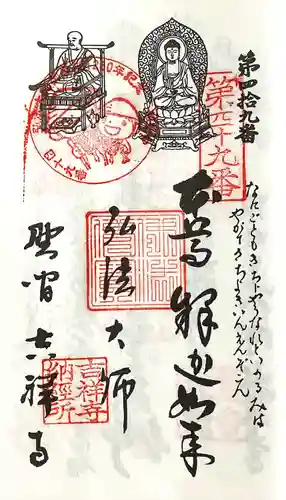 第四拾九番
第四十九番
なにごともきちじやうなれといのるみは
やがてさちよきいんえんぞこん
本尊 釈迦如来
弘法大師
野間 吉祥寺
吉祥寺
納経所
四十九番
年記念